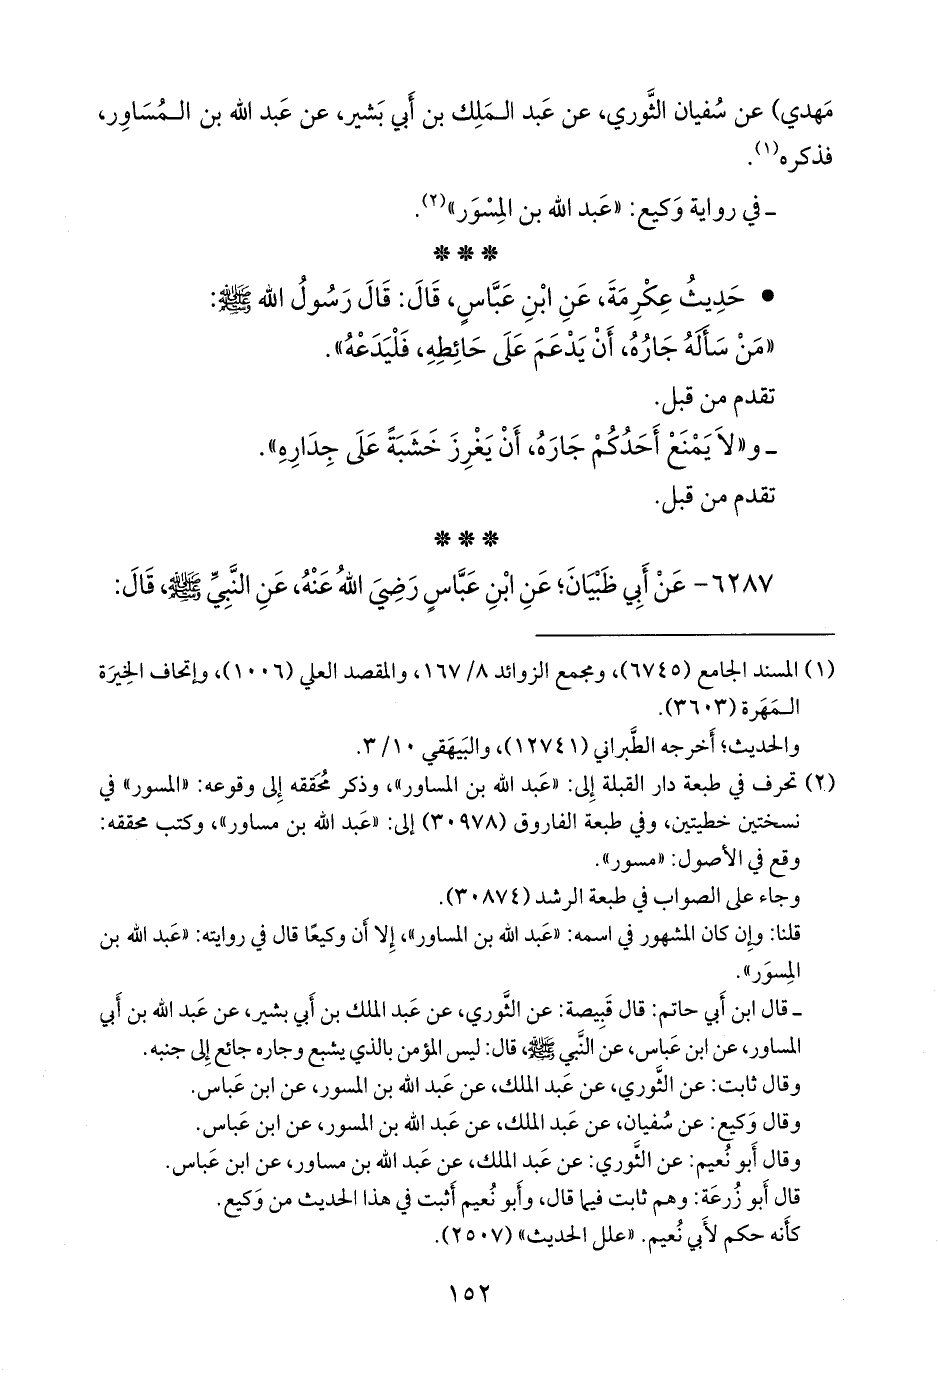 مَهدي) عن سُفيان الثَّوري، عن عَبد الـمَلِك بن أَبي بَشير، عن عَبد الله بن الـمُسَاوِر،
فذكره(١).
ـ في رواية وَكيع: «عَبد الله بن المِسْوَر»(٢).
* * *
• حَدِيثُ عِكْرِمَةَ، عَنِ ابْنِ عَبَّاسٍ، قَالَ: قَالَ رَسُولُ الله ﷺ:
«مَنْ سَأَلَهُ جَارُهُ، أَنْ يَدْعَمَ عَلَى حَائِطِهِ، فَلْيَدَعْهُ».
تقدم من قبل.
ـ و«لاَ يَمْنَعْ أَحَدُكُمْ جَارَهُ، أَنْ يَغْرِزَ خَشَبَةً عَلَى جِدَارِهِ».
تقدم من قبل.
* * *
٦٢٨٧- عَنْ أَبِي ظَبْيَانَ؛ عَنِ ابْنِ عَبَّاسٍ رَضِيَ اللهُ عَنْهُ، عَنِ النَّبِيِّ ﷺ، قَالَ:
(١) المسند الجامع (٦٧٤٥)، ومجمع الزوائد ٨/ ١٦٧، والمقصد العلي (١٠٠٦)، وإتحاف الخِيرَة
الـمَهَرة (٣٦٠٣).
والحديث؛ أخرجه الطَّبراني (١٢٧٤١)، والبَيهَقي ١٠/ ٣.
(٢) تحرف في طبعة دار القبلة إلى: «عَبد الله بن المساور»، وذكر مُحَققه إلى وقوعه: «المسور» في
نسختين خطيتين، وفي طبعة الفاروق (٣٠٩٧٨) إلى: «عَبد الله بن مساور»، وكتب محققه:
وقع في الأصول: «مسور».
وجاء على الصواب في طبعة الرشد (٣٠٨٧٤).
قلنا: وإن كان المشهور في اسمه: «عَبد الله بن المساور»، إلا أن وكيعًا قال في روايته: «عَبد الله بن
المِسوَر».
ـ قال ابن أَبي حاتم: قال قَبِيصة: عن الثَّوري، عن عَبد الملك بن أَبي بشير، عن عَبد الله بن أَبي
المساور، عن ابن عَباس، عن النَّبي ﷺ، قال: ليس المؤمن بالذي يشبع وجاره جائع إلى جنبه.
وقال ثابت: عن الثَّوري، عن عَبد الملك، عن عَبد الله بن المسور، عن ابن عَباس.
وقال وَكيع: عن سُفيان، عن عَبد الملك، عن عَبد الله بن المسور، عن ابن عَباس.
وقال أَبو نُعيم: عن الثَّوري: عن عَبد الملك، عن عَبد الله بن مساور، عن ابن عَباس.
قال أَبو زُرعَة: وهم ثابت فيما قال، وأَبو نُعيم أثبت في هذا الحديث من وَكيع.
كأنه حكم لأَبي نُعيم. «علل الحديث» (٢٥٠٧).
١٥٢